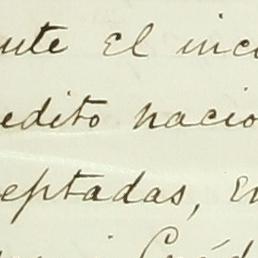 ute el inc
edito nacio
eptadas, en
Créd